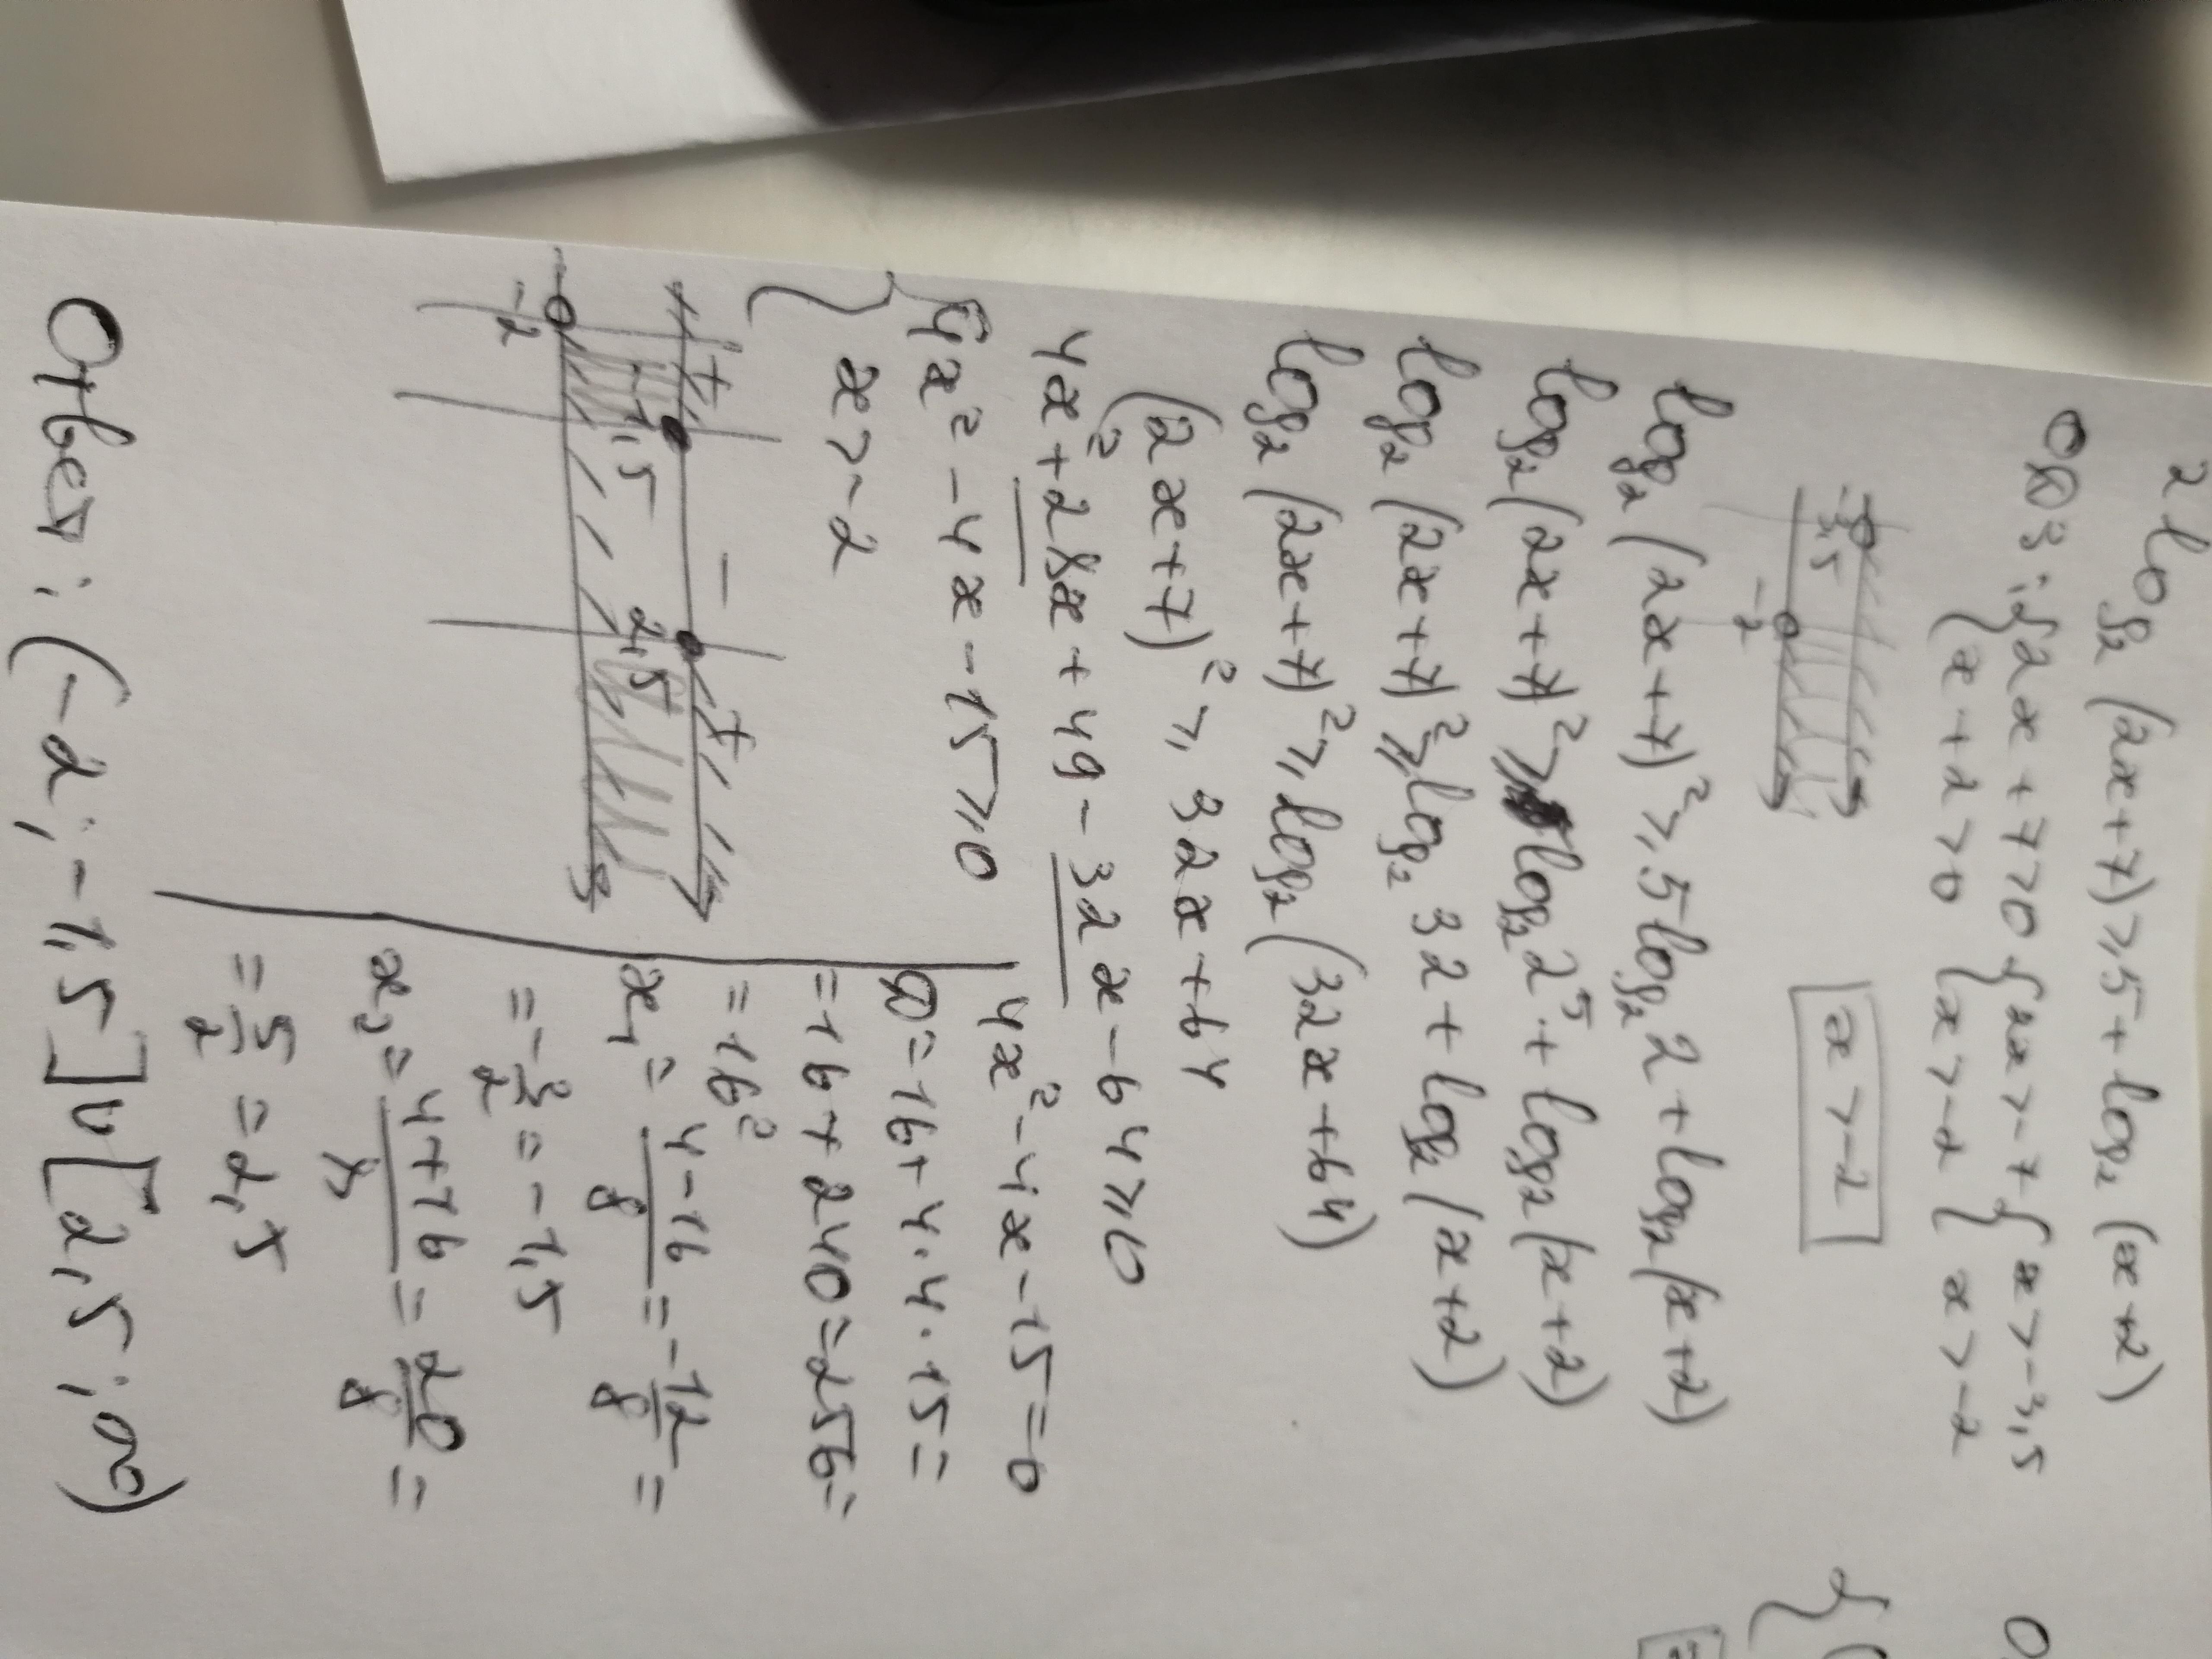 2 log₂ (2x+7) ⩾ 5 + log₂ (x+2)
ОДЗ: { 2x+7>0 { 2x>-7 { x>-3,5
{ x+2>0 { x>-2 { x>-2
-3,5
-2
x>-2
log₂ (2x+7)² ⩾ 5 log₂ 2 + log₂ (x+2)
log₂ (2x+7)² ⩾ log₂ 2⁵ + log₂ (x+2)
log₂ (2x+7)² ⩾ log₂ 32 + log₂ (x+2)
log₂ (2x+7)² ⩾ log₂ (32x+64)
(2x+7)² ⩾ 32x+64
4x²+28x+49-32x-64⩾0
{ 4x²-4x-15⩾0
{ x>-2
+ - +
-1,5 2,5
-2
4x²-4x-15=0
D=16+4·4·15=
=16+240=256=
=16²
x₁=(4-16)/8=-12/8=
=-3/2=-1,5
x₂=(4+16)/8=20/8=
=5/2=2,5
Ответ: (-2; -1,5]∪[2,5; ∞)